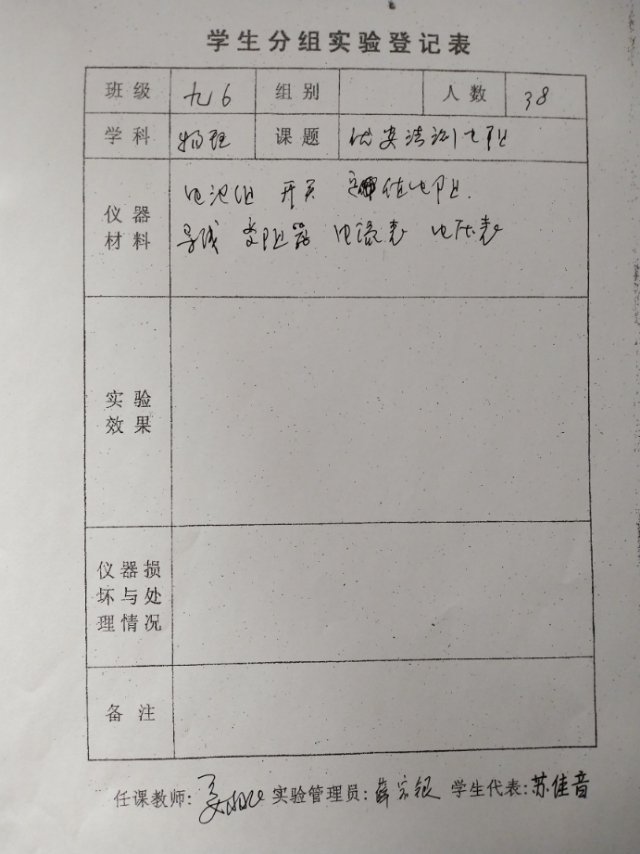 学生分组实验登记表
班级 九6 组别 人数 38
学科 物理 课题 伏安法测电阻
仪器材料 电池组 开关 定值电阻
导线 变阻器 电流表 电压表
实验效果
仪器损坏与处理情况
备注
任课教师: 实验管理员: 薛宗银 学生代表: 苏佳音